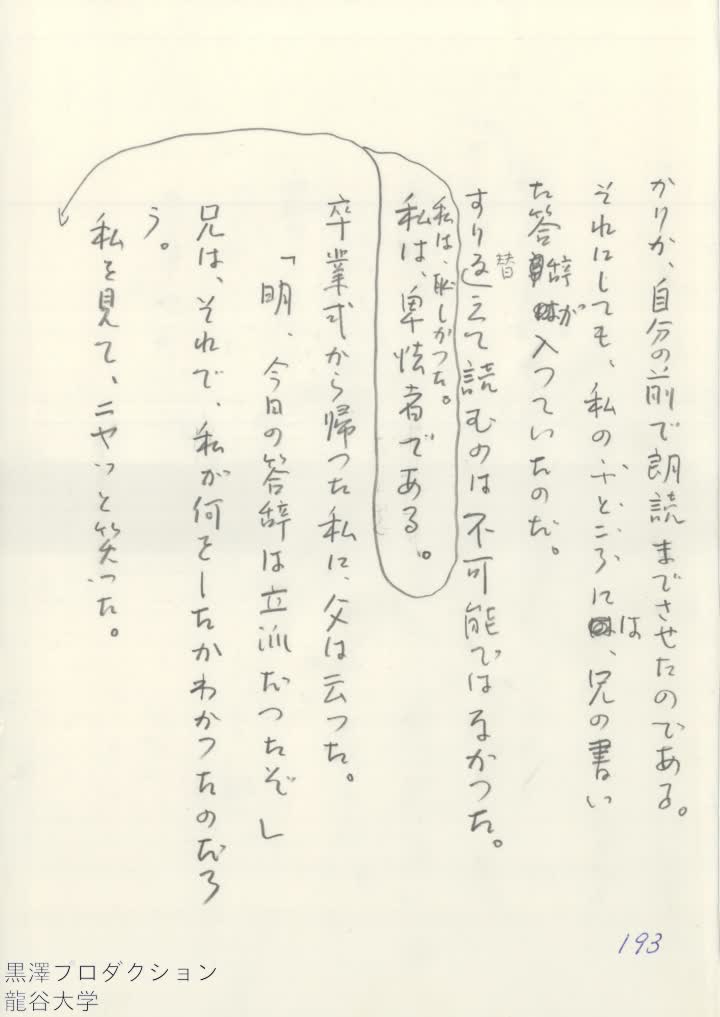 かりか、自分の前で朗読までさせたのである。
それにしても、私のふところには、兄の書い
た答辞が入つていたのだ。
すり替えて読むのは不可能ではなかつた。
私は、恥しかつた。
私は、卑怯者である。
卒業式から帰つた私に、父は云つた。
「明、今日の答辞は立派だつたぞ」
兄は、それで、私が何をしたかわかつたのだろ
う。
私を見て、ニヤッと笑つた。
193
黒澤プロダクション
龍谷大学